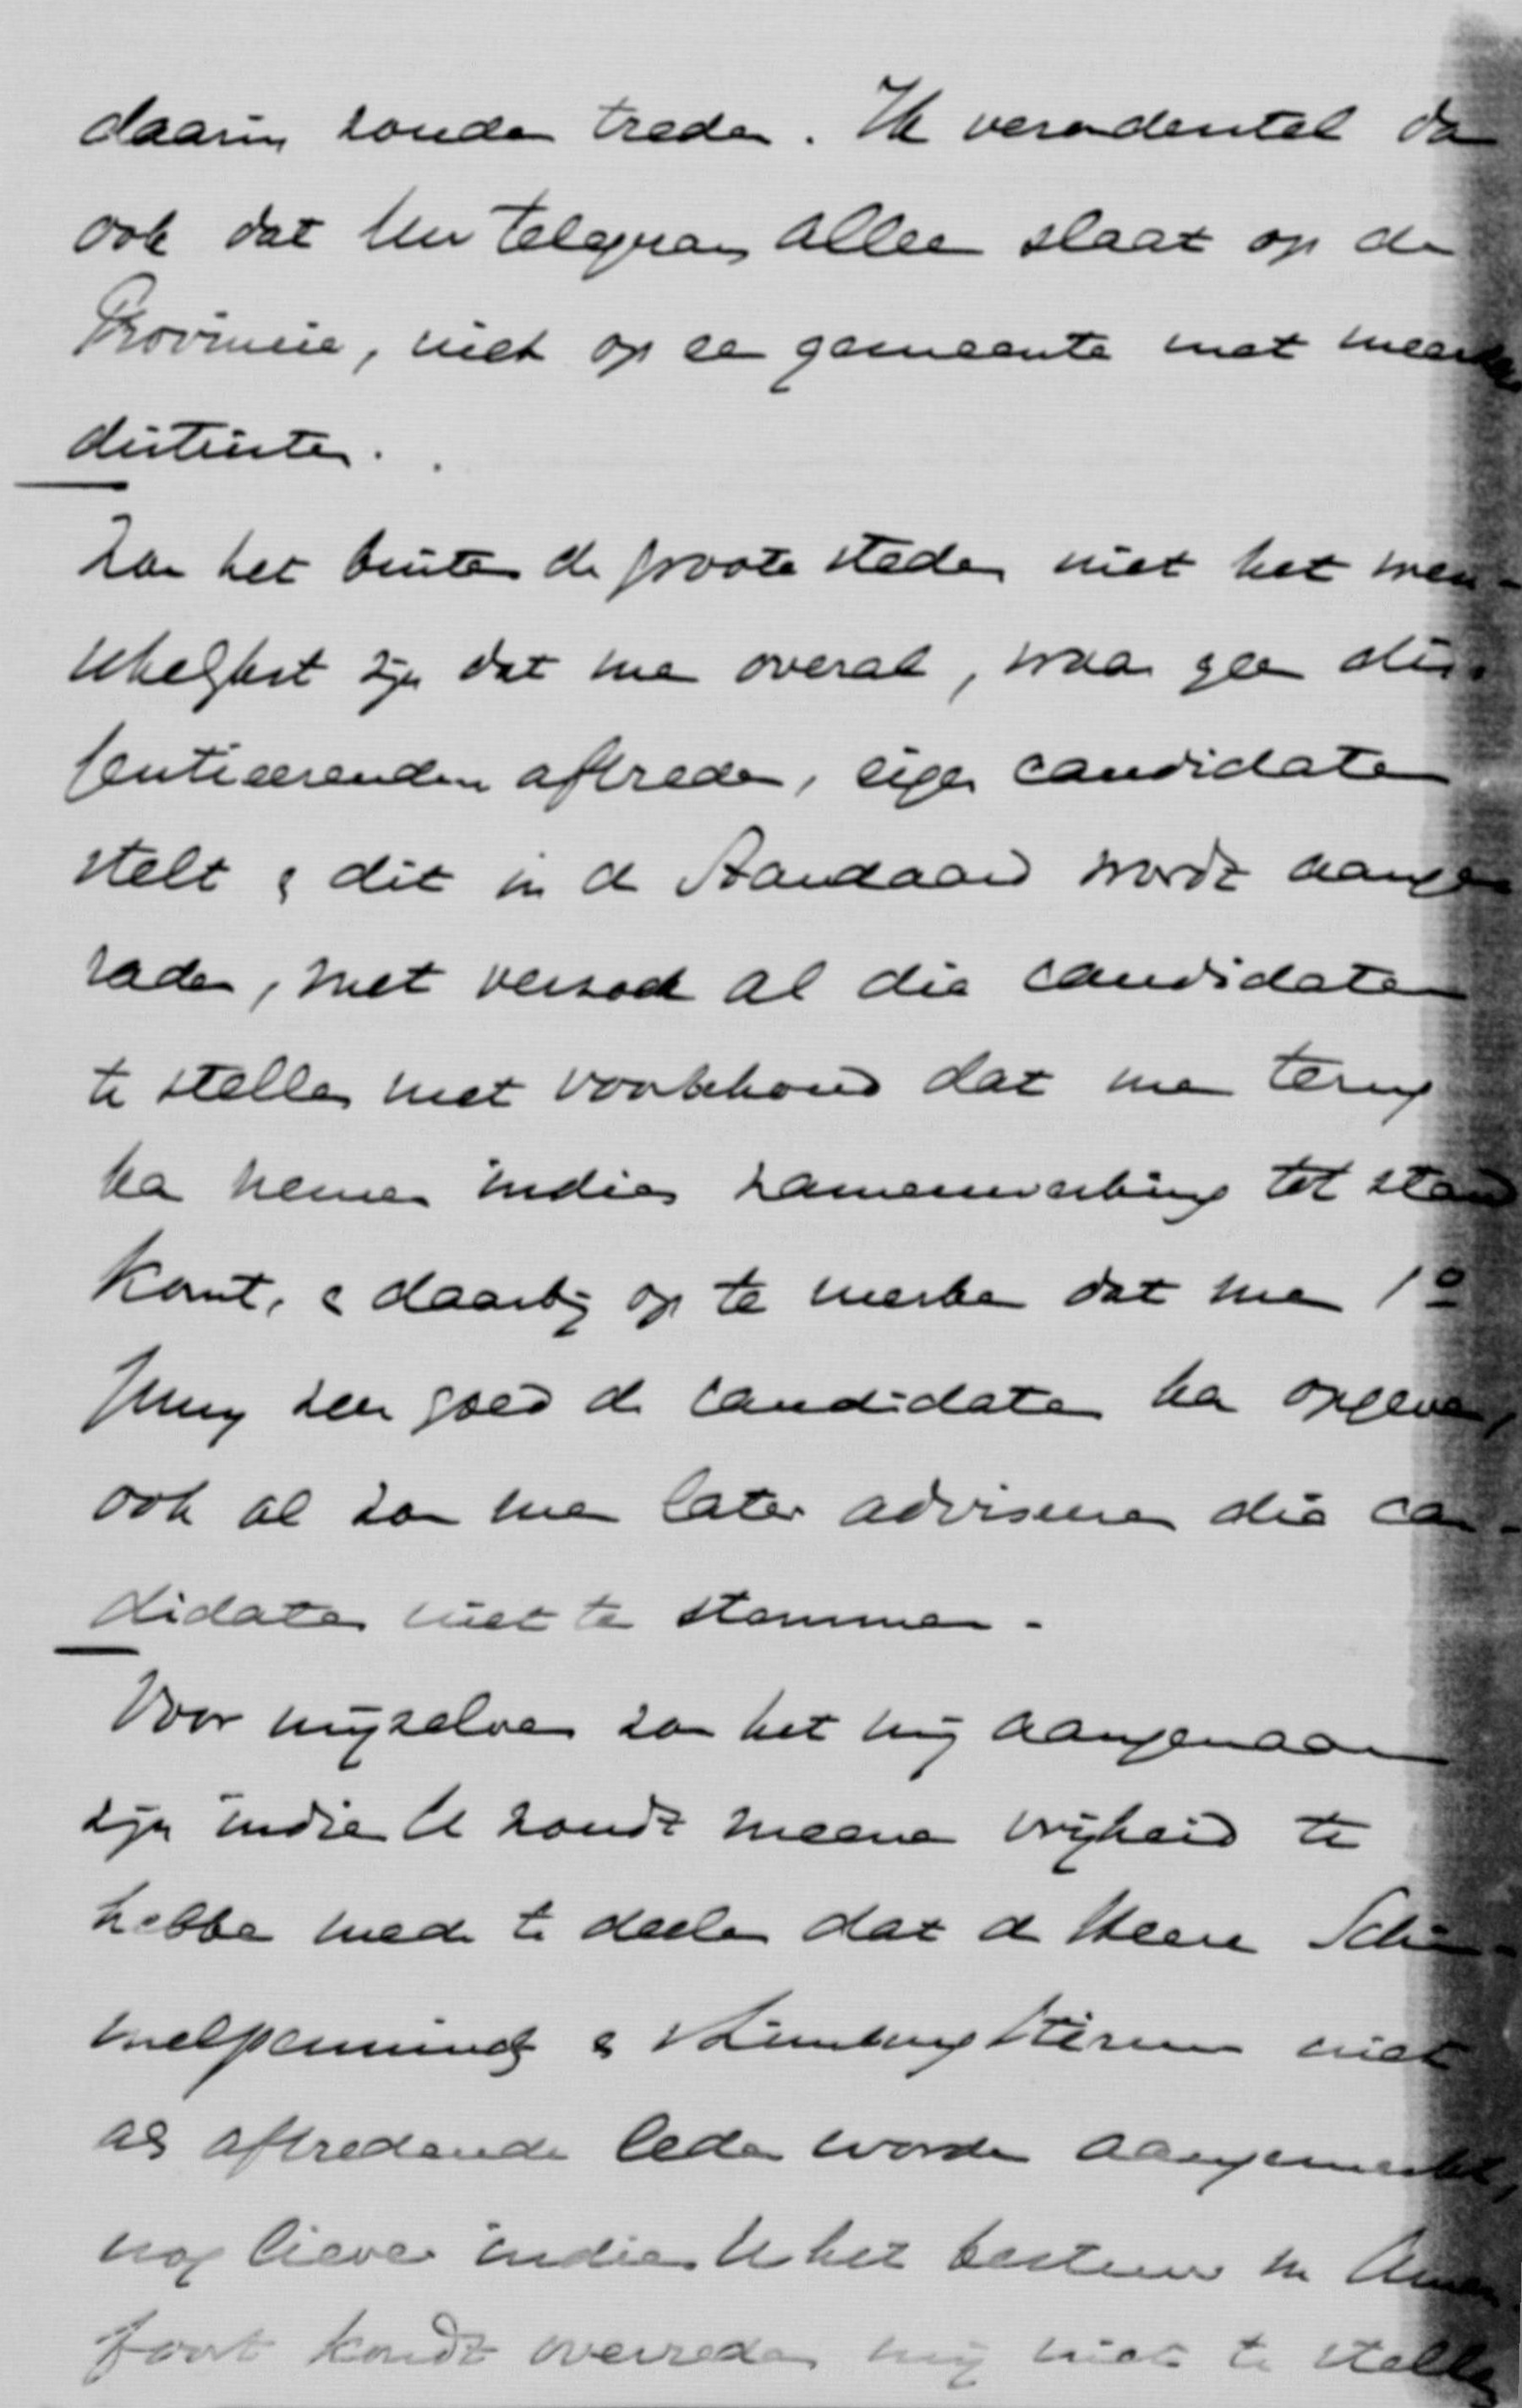 daarin zouden treden. Ik veronderstel dan
ook dat Uw telegram alleen slaat op de
Provincie, niet op een gemeente met meerdere
districten.
Zou het buiten de groote steden niet het wen-
schelijkst zijn dat men overal, waar geen dis-
sentieerenden aftreden, eigen candidaten
stelt & dit in de Standaard wordt aange-
raden, met verzoek al die candidaten
te stellen met voorbehoud dat men terug
kan nemen indien samenwerking tot stand
komt, & daarbij op te merken dat men 1º
Juny zeer goed de candidaten kan opgeven,
ook al zou men later adviseren die can-
didaten niet te stemmen.
Voor mijzelven zou het mij aangenaam
zijn indien U zoudt meenen vrijheid te
hebben mede te deelen dat de Heeren Schim-
melpenninck & v Limburg Stirum niet
als aftredende leden worden aangemerkt,
nog liever indien U het bestuur in Amers-
foort kondt overreden mij niet te stellen